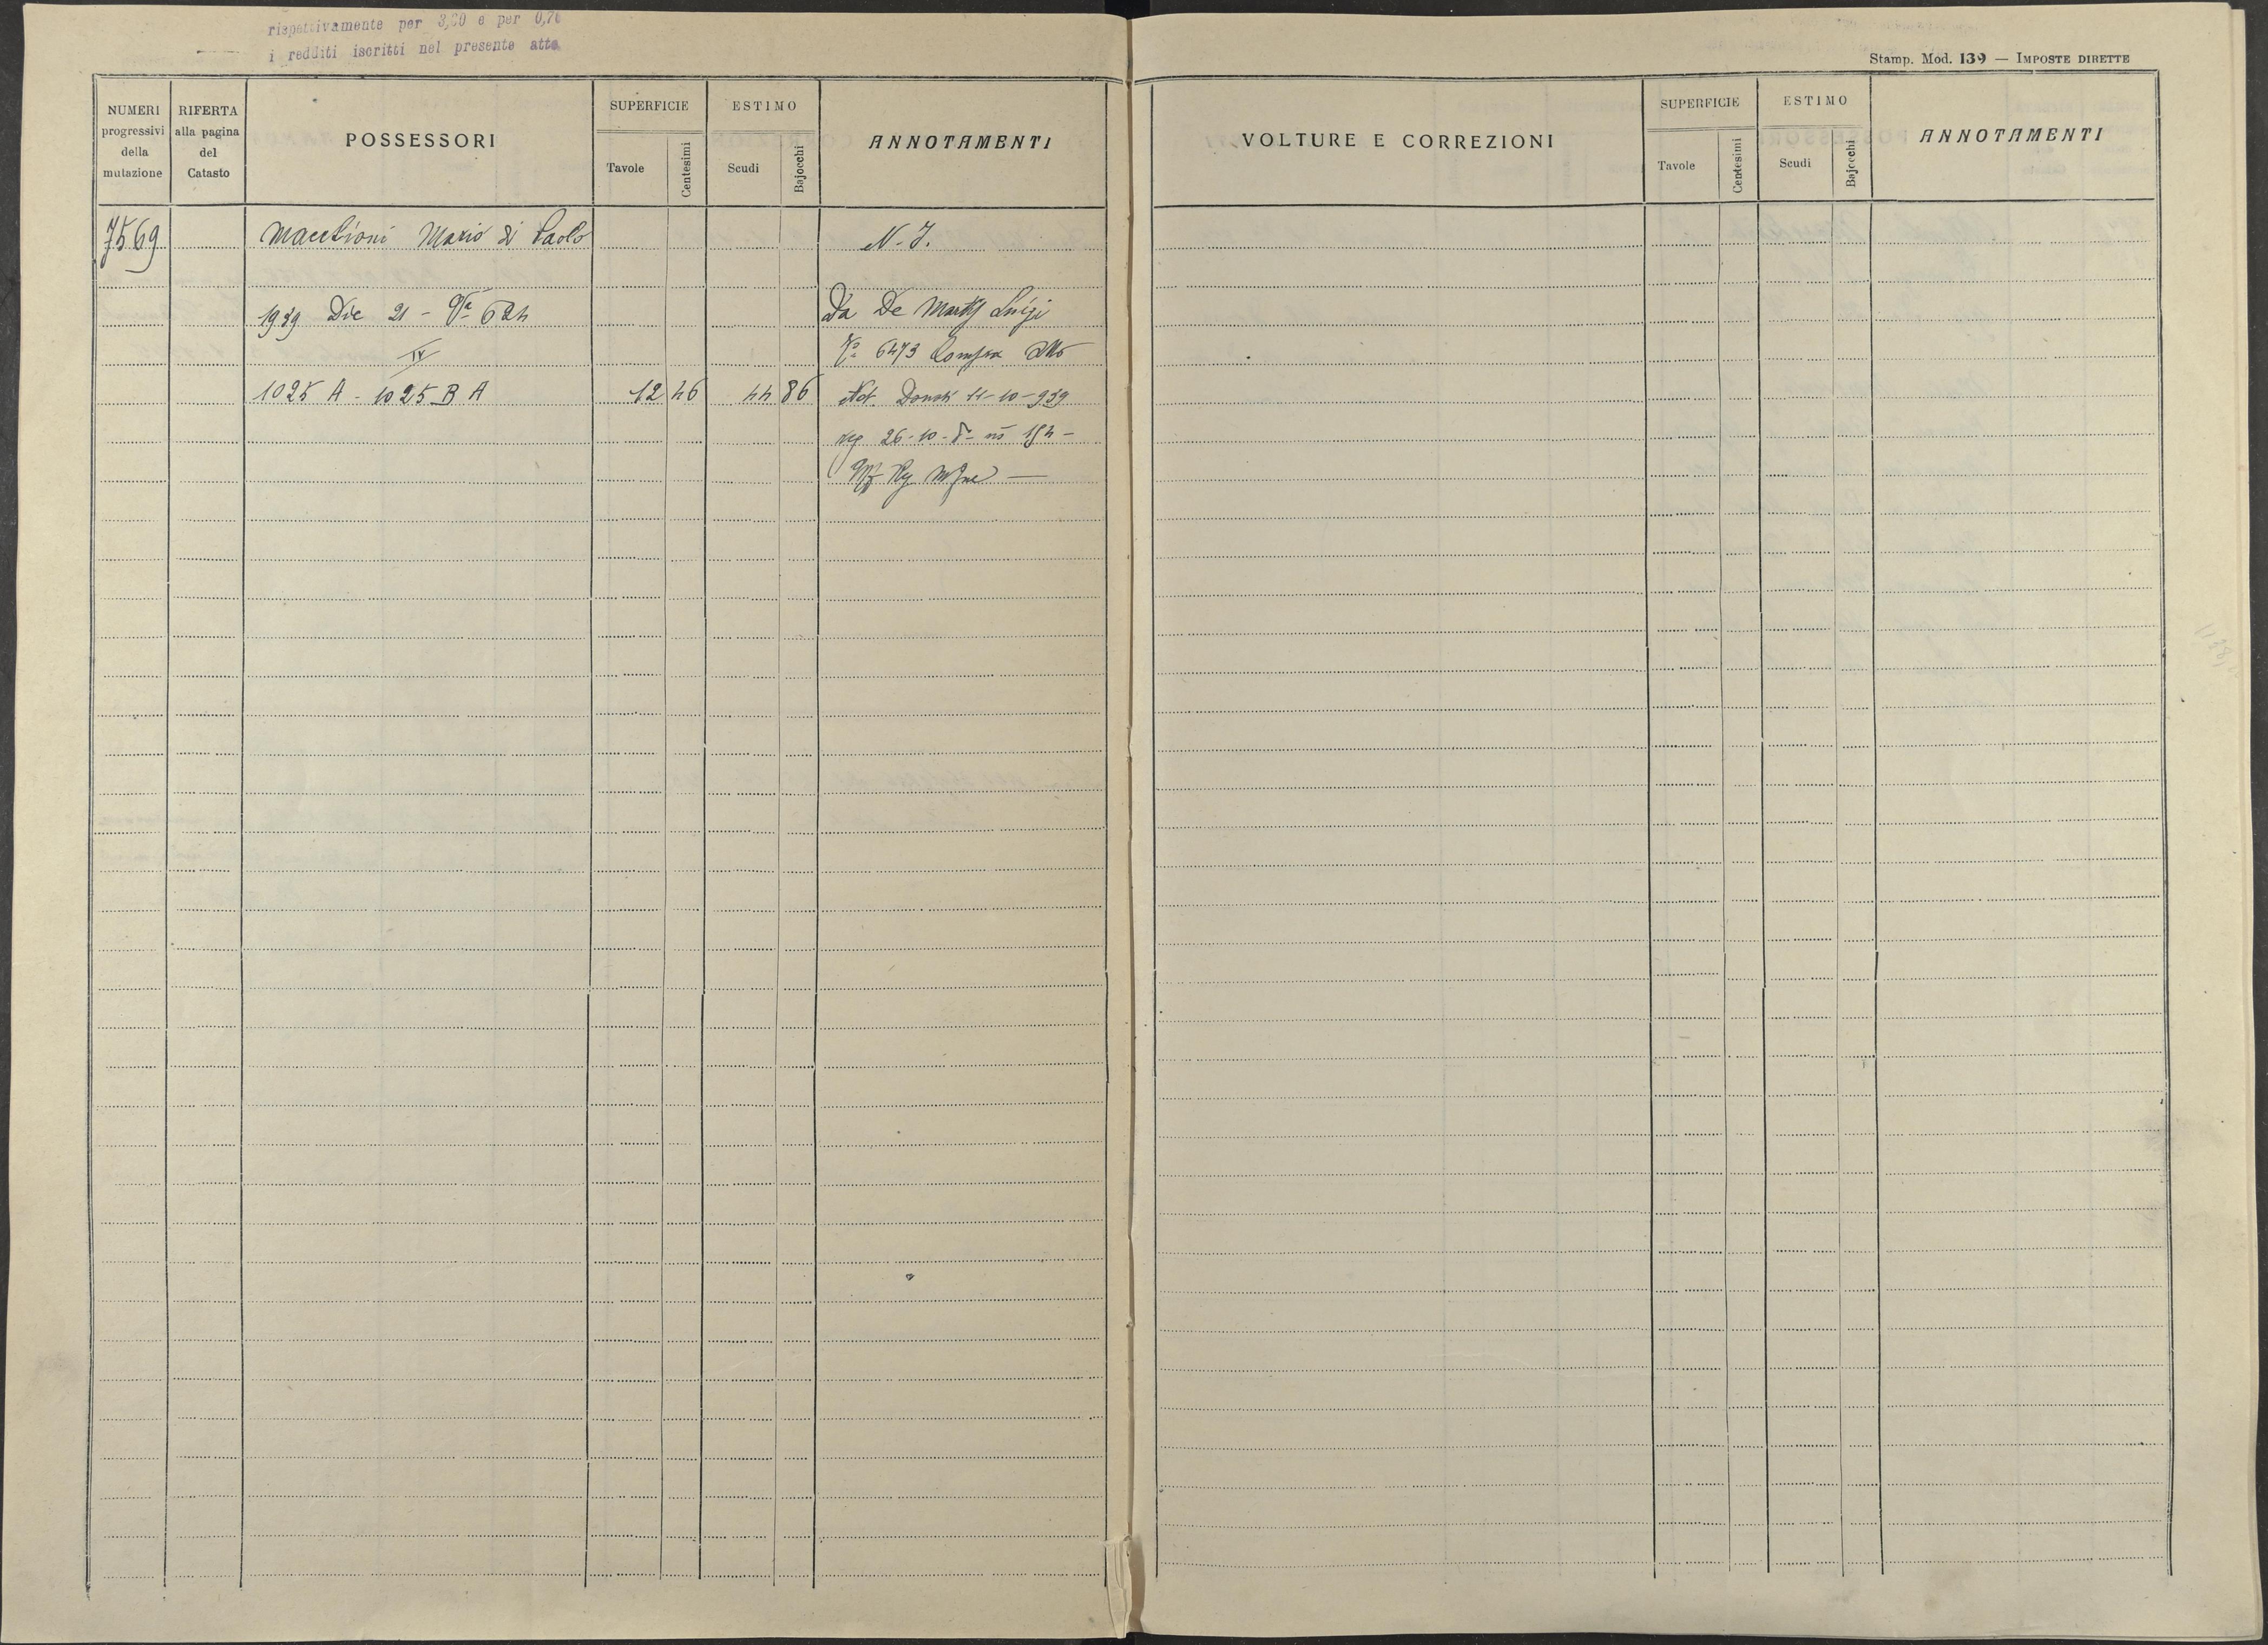 rispettivamente per 3,20 e per 0,70
i redditi iscritti nel presente atto
Stamp. Mod. 139 — IMPOSTE DIRETTE
NUMERI progressivi della mutazione
RIFERTA alla pagina del Catasto
POSSESSORI
SUPERFICIE
Tavole
Centesimi
ESTIMO
Scudi
Bajocchi
ANNOTAMENTI
VOLTURE E CORREZIONI
SUPERFICIE
Tavole
Centesimi
ESTIMO
Scudi
Bajocchi
ANNOTAMENTI
7569 Macchioni Mario di Paolo N. I.
1939 Dic 21 - 624 Da De Luigi
IV 6473 Compra Atto
1025 A - 1025 B A 12 46 44 86 Not. 11-10-939
26-10-